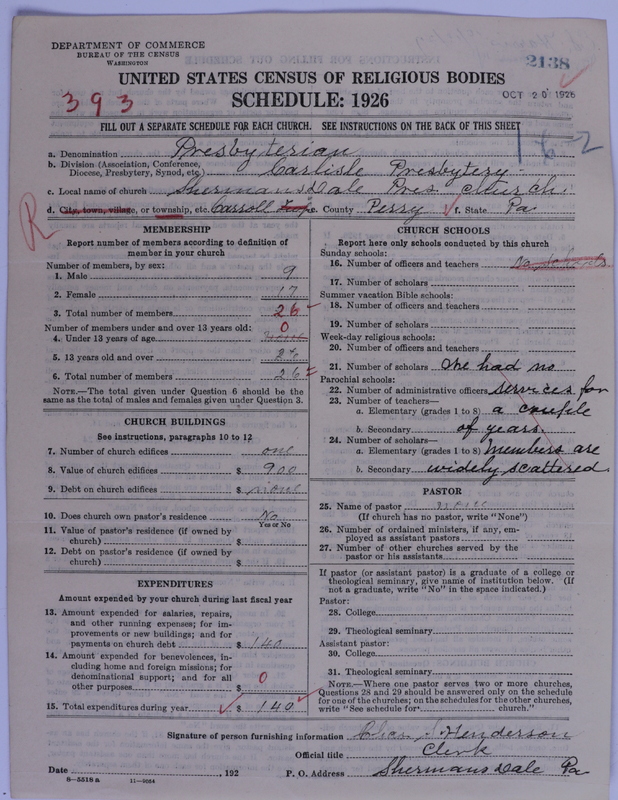 DEPARTMENT OF COMMERCE
BUREAU OF THE CENSUS
WASHINGTON
2138
UNITED STATES CENSUS OF RELIGIOUS BODIES
393
SCHEDULE: 1926
OCT 20 1926
FILL OUT A SEPARATE SCHEDULE FOR EACH CHURCH. SEE INSTRUCTIONS ON THE BACK OF THIS SHEET
a. Denomination Presbyterian
b. Division (Association, Conference, Diocese, Presbytery, Synod, etc.) Carlisle Presbytery
c. Local name of church Shermans Dale Pres Church
d. City, town, village, or township, etc. Carroll Twp e. County Perry f. State Pa
R
MEMBERSHIP
Report number of members according to definition of member in your church
Number of members, by sex:
1. Male 9
2. Female 17
3. Total number of members 26
Number of members under and over 13 years old: 0
4. Under 13 years of age
5. 13 years old and over 26
6. Total number of members 26
NOTE.—The total given under Question 6 should be the same as the total of males and females given under Question 3.
CHURCH BUILDINGS
See instructions, paragraphs 10 to 12
7. Number of church edifices one
8. Value of church edifices $ 900
9. Debt on church edifices $ none
10. Does church own pastor's residence No
Yes or No
11. Value of pastor's residence (if owned by church) $
12. Debt on pastor's residence (if owned by church) $
EXPENDITURES
Amount expended by your church during last fiscal year
13. Amount expended for salaries, repairs, and other running expenses; for improvements or new buildings; and for payments on church debt $ 140
14. Amount expended for benevolences, including home and foreign missions; for denominational support; and for all other purposes $ 0
15. Total expenditures during year $ 140
CHURCH SCHOOLS
Report here only schools conducted by this church
Sunday schools:
16. Number of officers and teachers
17. Number of scholars
Summer vacation Bible schools:
18. Number of officers and teachers
19. Number of scholars
Week-day religious schools:
20. Number of officers and teachers
21. Number of scholars We had no
Parochial schools:
22. Number of administrative officers services for
23. Number of teachers—
a. Elementary (grades 1 to 8) a couple
b. Secondary of years.
24. Number of scholars—
a. Elementary (grades 1 to 8) members are
b. Secondary widely scattered.
PASTOR
25. Name of pastor none
(If church has no pastor, write "None")
26. Number of ordained ministers, if any, employed as assistant pastors
27. Number of other churches served by the pastor or his assistants
If pastor (or assistant pastor) is a graduate of a college or theological seminary, give name of institution below. (If not a graduate, write "No" in the space indicated.)
Pastor:
28. College
29. Theological seminary
Assistant pastor:
30. College
31. Theological seminary
NOTE.—Where one pastor serves two or more churches, Questions 28 and 29 should be answered only on the schedule for one of the churches; on the schedules for the other churches, write "See schedule for church."
Signature of person furnishing information Chas S Henderson
Official title Clerk
Date , 192 P. O. Address Shermans Dale Pa
8-5518 a 11-9564